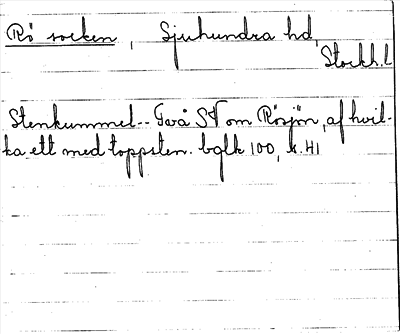 Rö socken, Sjuhundra hd,
Stockh. l
Stenkummel-- Två St om Rösjön, af hvil-
ka ett med toppsten. bglk 100, s. 41